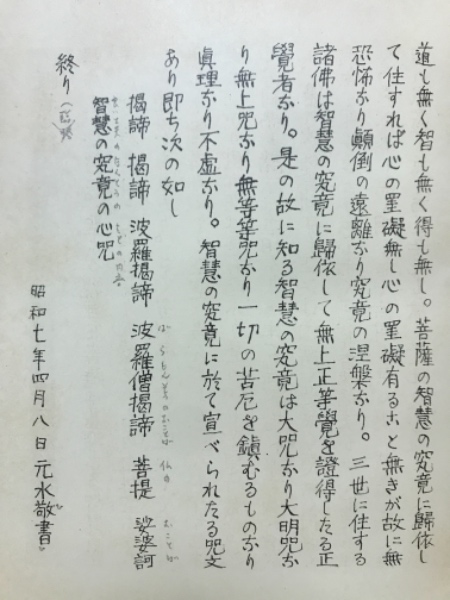 道も無く智も無く得も無し。菩薩の智慧の究竟に歸依し
て住すれば心の罣礙無し心の罣礙有ること無きが故に無
恐怖なり顚倒の遠離なり究竟の涅槃なり。三世に住する
諸佛は智慧の究竟に歸依して無上正等覺を證得したる正
覺者なり。是の故に知る智慧の究竟は大咒なり大明咒な
り無上咒なり無等等咒なり一切の苦厄を鎭むるものなり
眞理なり不虛なり。智慧の究竟に於て宣べられたる咒文
あり即ち次の如し
揭諦 揭諦 波羅揭諦 波羅僧揭諦 菩提 娑婆訶
智慧の究竟の心咒
終り
昭和七年四月八日元水敬書